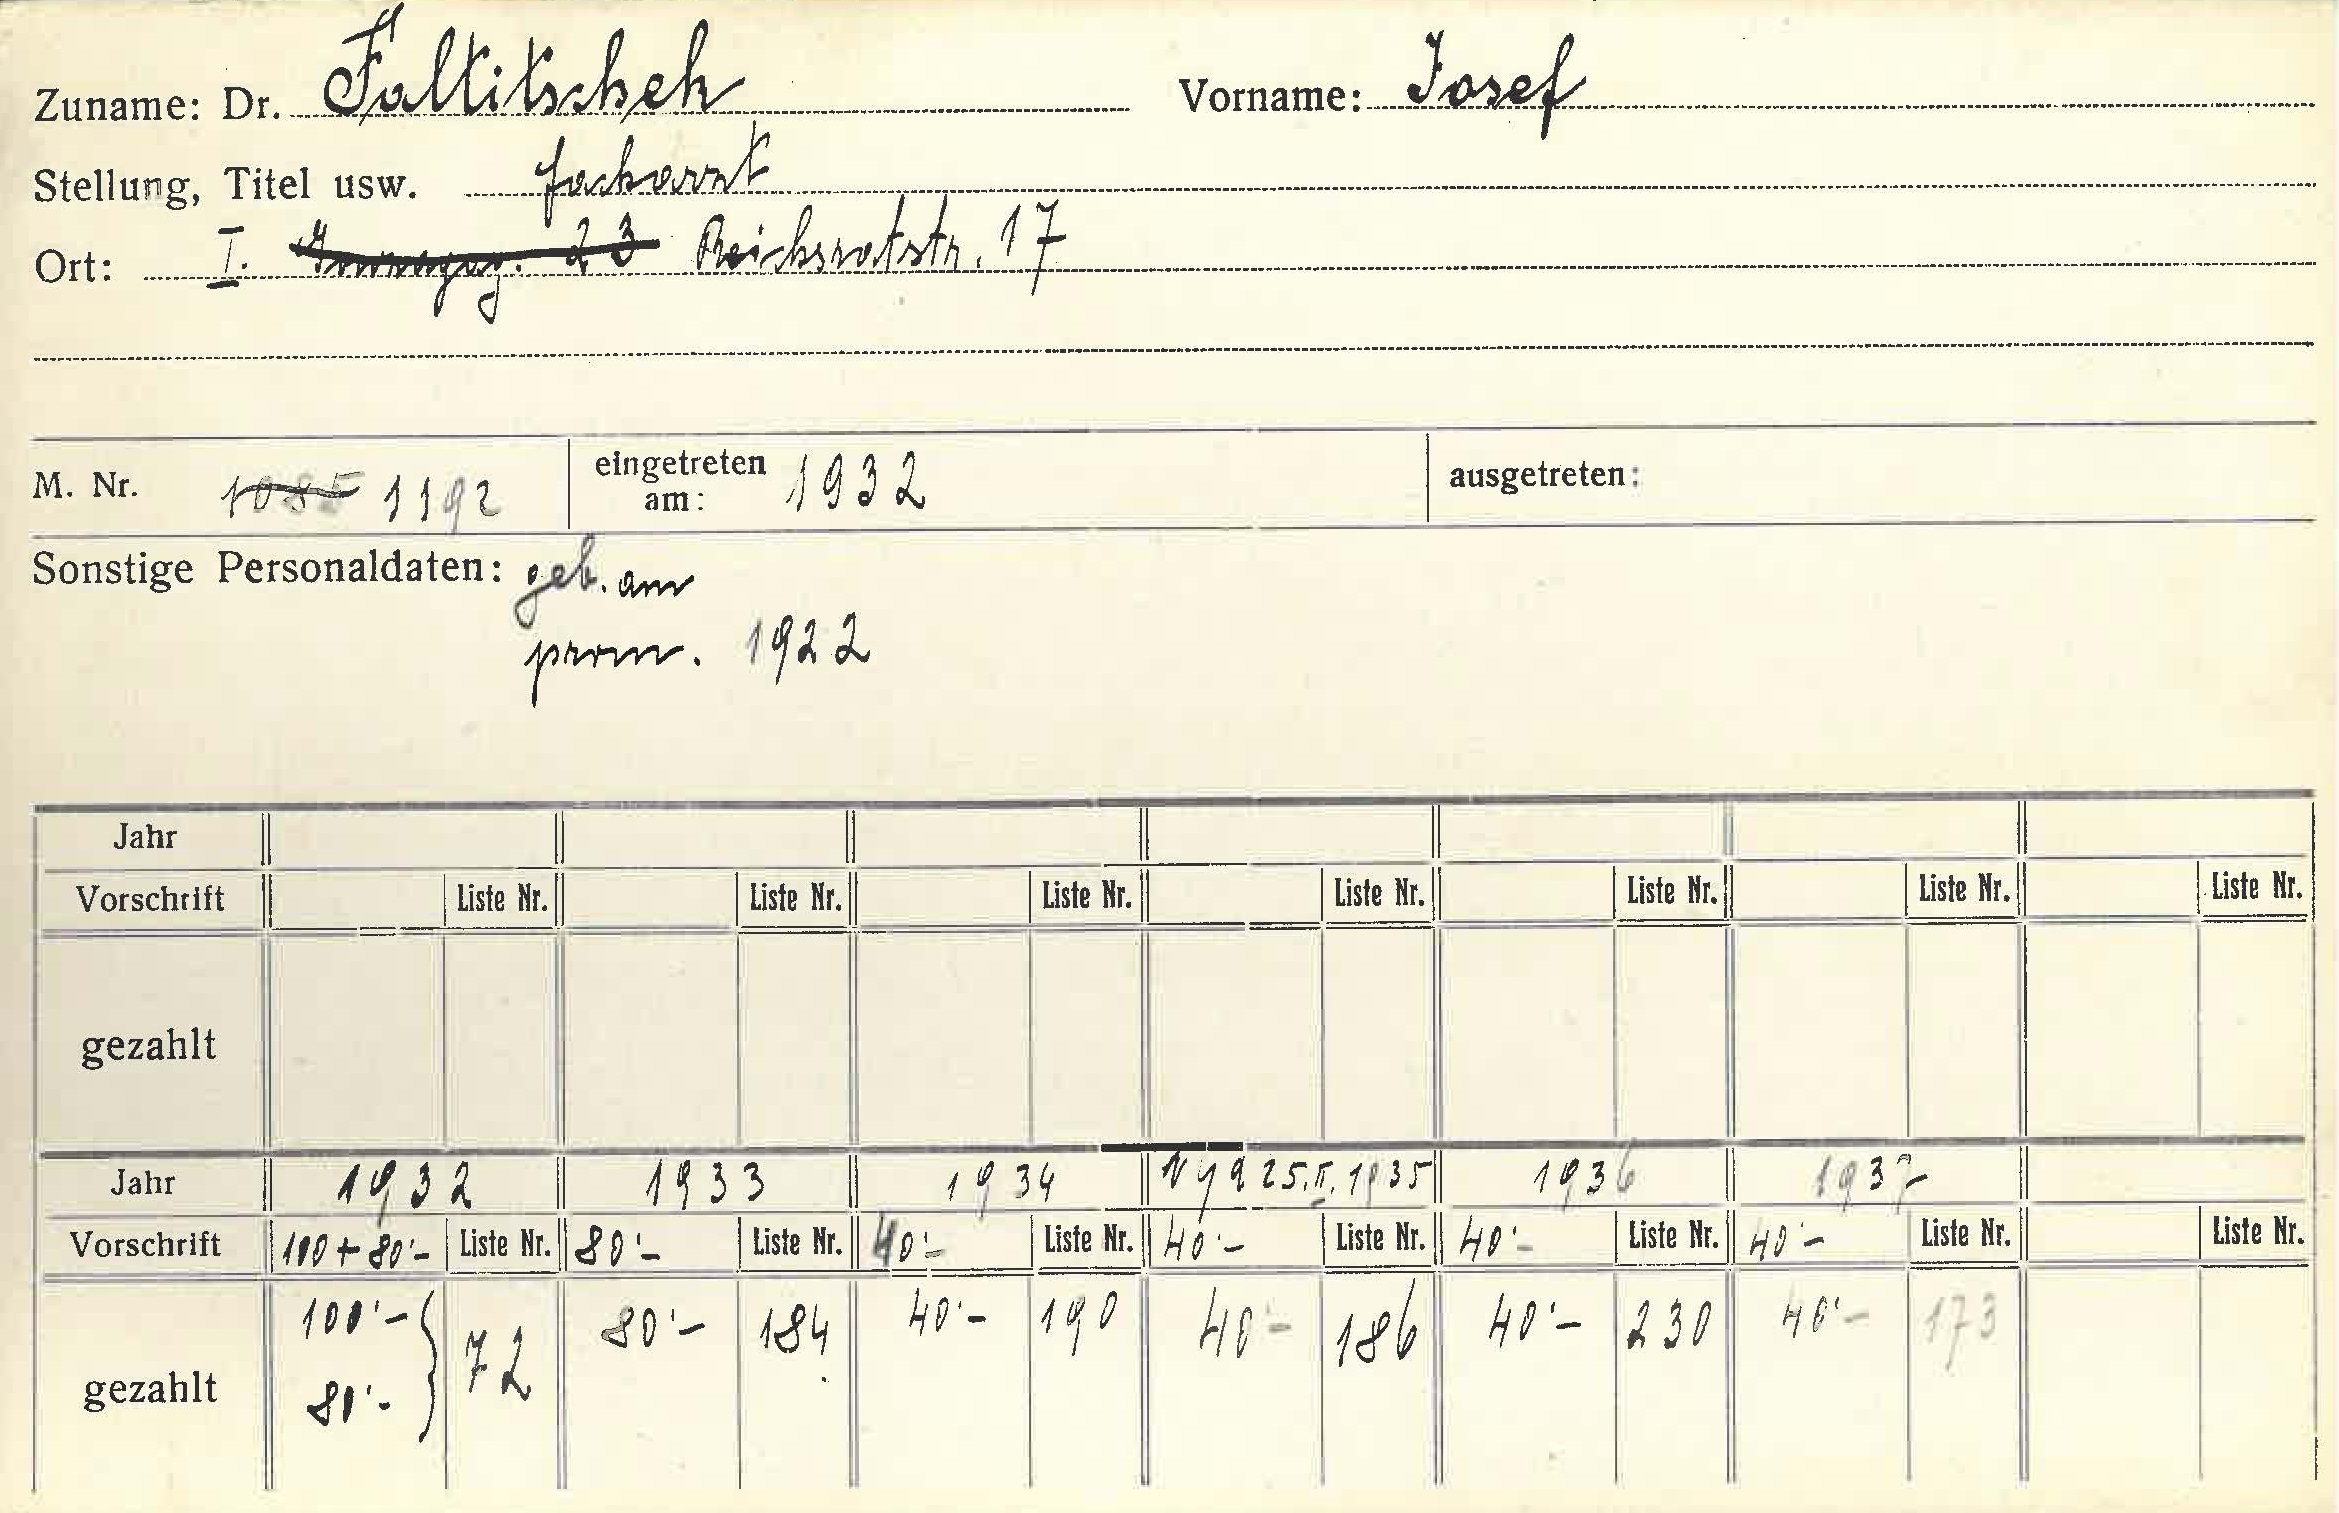 Zuname: Dr. Faltitschek Vorname: Josef
Stellung, Titel usw. Facharzt
Ort: I. 23 Reichsratstr. 17
M. Nr. 1085 1192 eingetreten am: 1932 ausgetreten:
Sonstige Personaldaten: geb. am
prom. 1922
Jahr
Vorschrift Liste Nr. Liste Nr. Liste Nr. Liste Nr. Liste Nr. Liste Nr. Liste Nr.
gezahlt
Jahr 1932 1933 1934 25.II.1935 1936 1937
Vorschrift 100 + 80'- Liste Nr. 80'- Liste Nr. 40'- Liste Nr. 40'- Liste Nr. 40'- Liste Nr. 40'- Liste Nr. Liste Nr.
gezahlt 100'- 80'- } 72 80'- 184 40'- 190 40'- 186 40'- 230 40'- 173